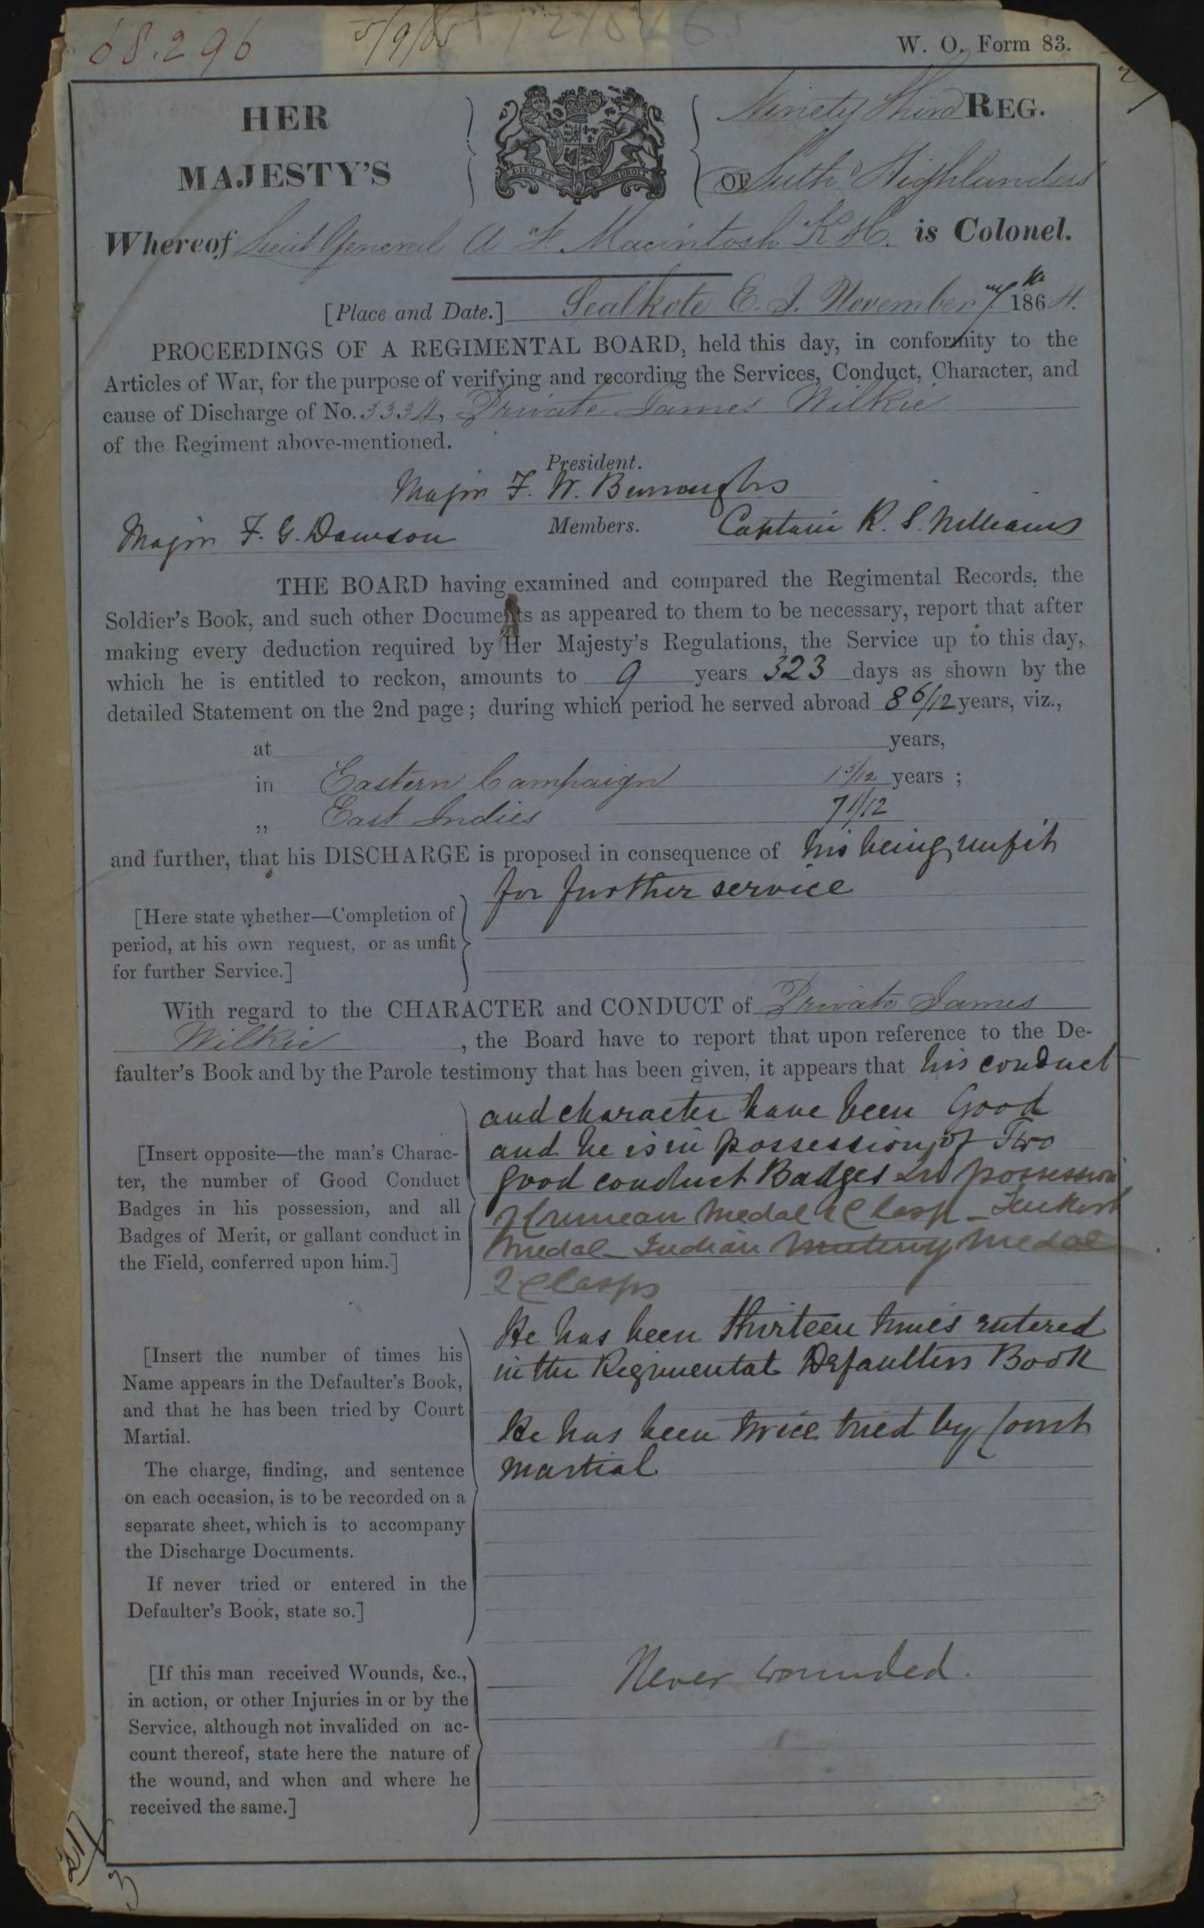 68.296
5/9/65
W. O. Form 83.
HER
MAJESTY'S
DIEU ET MON DROIT
Ninety Third REG.
OF Suthd Highlanders
Whereof Lieut General A F. Macintosh K.H. is Colonel.
[Place and Date.] Sealkote E. I. November 7th 1864.
PROCEEDINGS OF A REGIMENTAL BOARD, held this day, in conformity to the
Articles of War, for the purpose of verifying and recording the Services, Conduct, Character, and
cause of Discharge of No. 3334, Private James Wilkie
of the Regiment above-mentioned.
President.
Major F. W. Burroughs
Members.
Major F. G. Dawson
Captain R. S. Williams
THE BOARD having examined and compared the Regimental Records, the
Soldier's Book, and such other Documents as appeared to them to be necessary, report that after
making every deduction required by Her Majesty's Regulations, the Service up to this day,
which he is entitled to reckon, amounts to 9 years 323 days as shown by the
detailed Statement on the 2nd page; during which period he served abroad 8 6/12 years, viz.,
at years,
in Eastern Campaign 1 5/12 years;
„ East Indies 7 1/12
and further, that his DISCHARGE is proposed in consequence of his being unfit
for further service
[Here state whether—Completion of
period, at his own request, or as unfit
for further Service.]
With regard to the CHARACTER and CONDUCT of Private James
Wilkie, the Board have to report that upon reference to the De-
faulter's Book and by the Parole testimony that has been given, it appears that his conduct
and character have been Good
and he is in possession of Two
good conduct Badges In possession
of Crimean Medal 1 Clasp - Turkish
Medal - Indian Mutiny Medal
2 Clasps
[Insert opposite—the man's Charac-
ter, the number of Good Conduct
Badges in his possession, and all
Badges of Merit, or gallant conduct in
the Field, conferred upon him.]
He has been Thirteen times entered
in the Regimental Defaulters Book
He has been twice tried by Court
Martial
[Insert the number of times his
Name appears in the Defaulter's Book,
and that he has been tried by Court
Martial.
The charge, finding, and sentence
on each occasion, is to be recorded on a
separate sheet, which is to accompany
the Discharge Documents.
If never tried or entered in the
Defaulter's Book, state so.]
Never wounded.
[If this man received Wounds, &c.,
in action, or other Injuries in or by the
Service, although not invalided on ac-
count thereof, state here the nature of
the wound, and when and where he
received the same.]
3